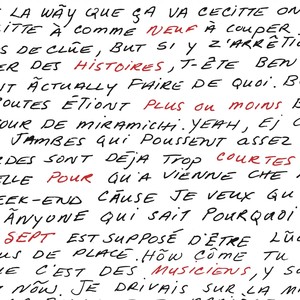 LA WÂY QUE ÇA VA CECITTE ON
ITTE À COMME NEUF À COUPER
S DE CLŪE, BUT SI Y Z'ARRÊTI
ER DES HISTOIRES, T-ÊTE BEN
T ÃCTUALLY FAIRE DE QUOI. B
OUTES ÉTIONT PLUS OU MOINS D
OUR DE MIRAMICHI. YEAH, EJ
JAMBES QUI POUSSENT ASSEZ
RDES SONT DÉJÀ TROP COURTES
ELLE POUR QU'A VIENNE CHE
EEK-END CÃUSE JE VEUX QU
ANYONE QUI SAIT POURQUOI
SEPT EST SUPPOSÉ D'ÊTRE LŪC
US DE PLACE. HÕW CÕME TU
E C'EST DES MUSICIENS, Y S
NOW. JE DRIVAIS SUR LA M